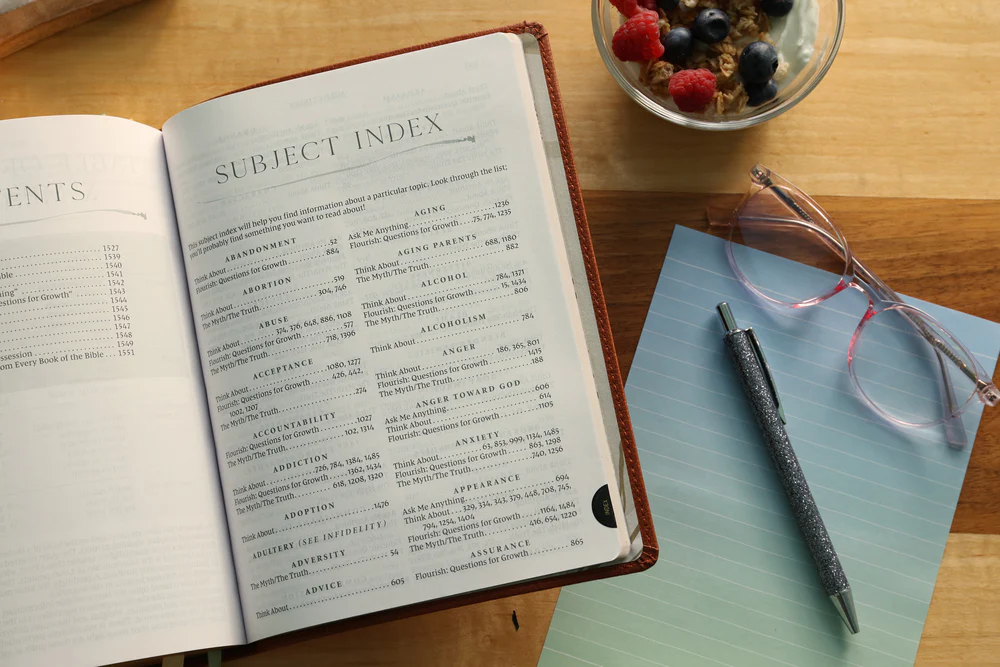 TENTS
1527
1539
ble 1540
ng" 1541
estions for Growth" 1542
1543
1544
1545
1546
1547
1548
session 1549
om Every Book of the Bible 1551
SUBJECT INDEX
This subject index will help you find information about a particular topic. Look through the list;
you'll probably find something you want to read about!
ABANDONMENT
Think About 52
Flourish: Questions for Growth 884
ABORTION
Think About 519
The Myth/The Truth 304, 746
ABUSE
Think About 374, 376, 648, 886, 1108
Flourish: Questions for Growth 577
The Myth/The Truth 718, 1396
ACCEPTANCE
Think About 1080, 1277
Flourish: Questions for Growth 426, 442,
1002, 1207
The Myth/The Truth 274
ACCOUNTABILITY
Flourish: Questions for Growth 1027
The Myth/The Truth 102, 1314
ADDICTION
Think About 726, 784, 1384, 1485
Flourish: Questions for Growth 1362, 1434
The Myth/The Truth 618, 1208, 1320
ADOPTION
Think About 1476
ADULTERY (SEE INFIDELITY)
ADVERSITY
The Myth/The Truth 54
ADVICE
Think About 605
AGING
Ask Me Anything 1236
Flourish: Questions for Growth 75, 774, 1235
AGING PARENTS
Think About 688, 1180
The Myth/The Truth 882
ALCOHOL
Think About 784, 1371
Flourish: Questions for Growth 15, 1434
The Myth/The Truth 806
ALCOHOLISM
Think About 784
ANGER
Think About 186, 365, 801
Flourish: Questions for Growth 1415
The Myth/The Truth 188
ANGER TOWARD GOD
Ask Me Anything 606
Think About 614
Flourish: Questions for Growth 1105
ANXIETY
Think About 63, 853, 999, 1134, 1485
Flourish: Questions for Growth 863, 1298
The Myth/The Truth 740, 1256
APPEARANCE
Ask Me Anything 694
Think About 329, 334, 343, 379, 448, 708, 745,
794, 1254, 1404
Flourish: Questions for Growth 1164, 1484
The Myth/The Truth 416, 654, 1220
ASSURANCE
Flourish: Questions for Growth 865